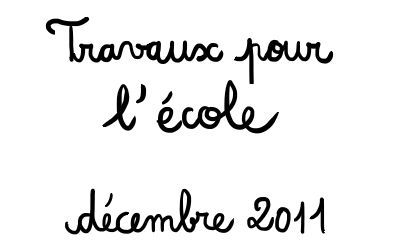 Travaux pour
l'école
décembre 2011